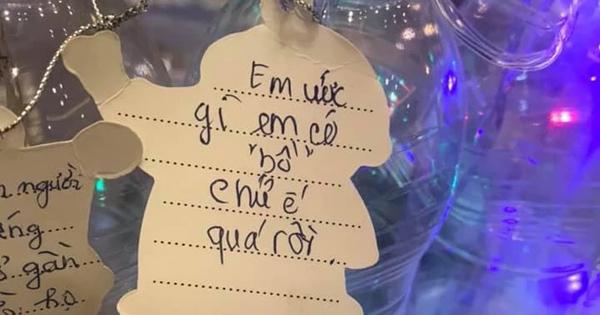 Em ước
gì em có
"bồ"
chứ ế
quá rồi.
người
gần
họ